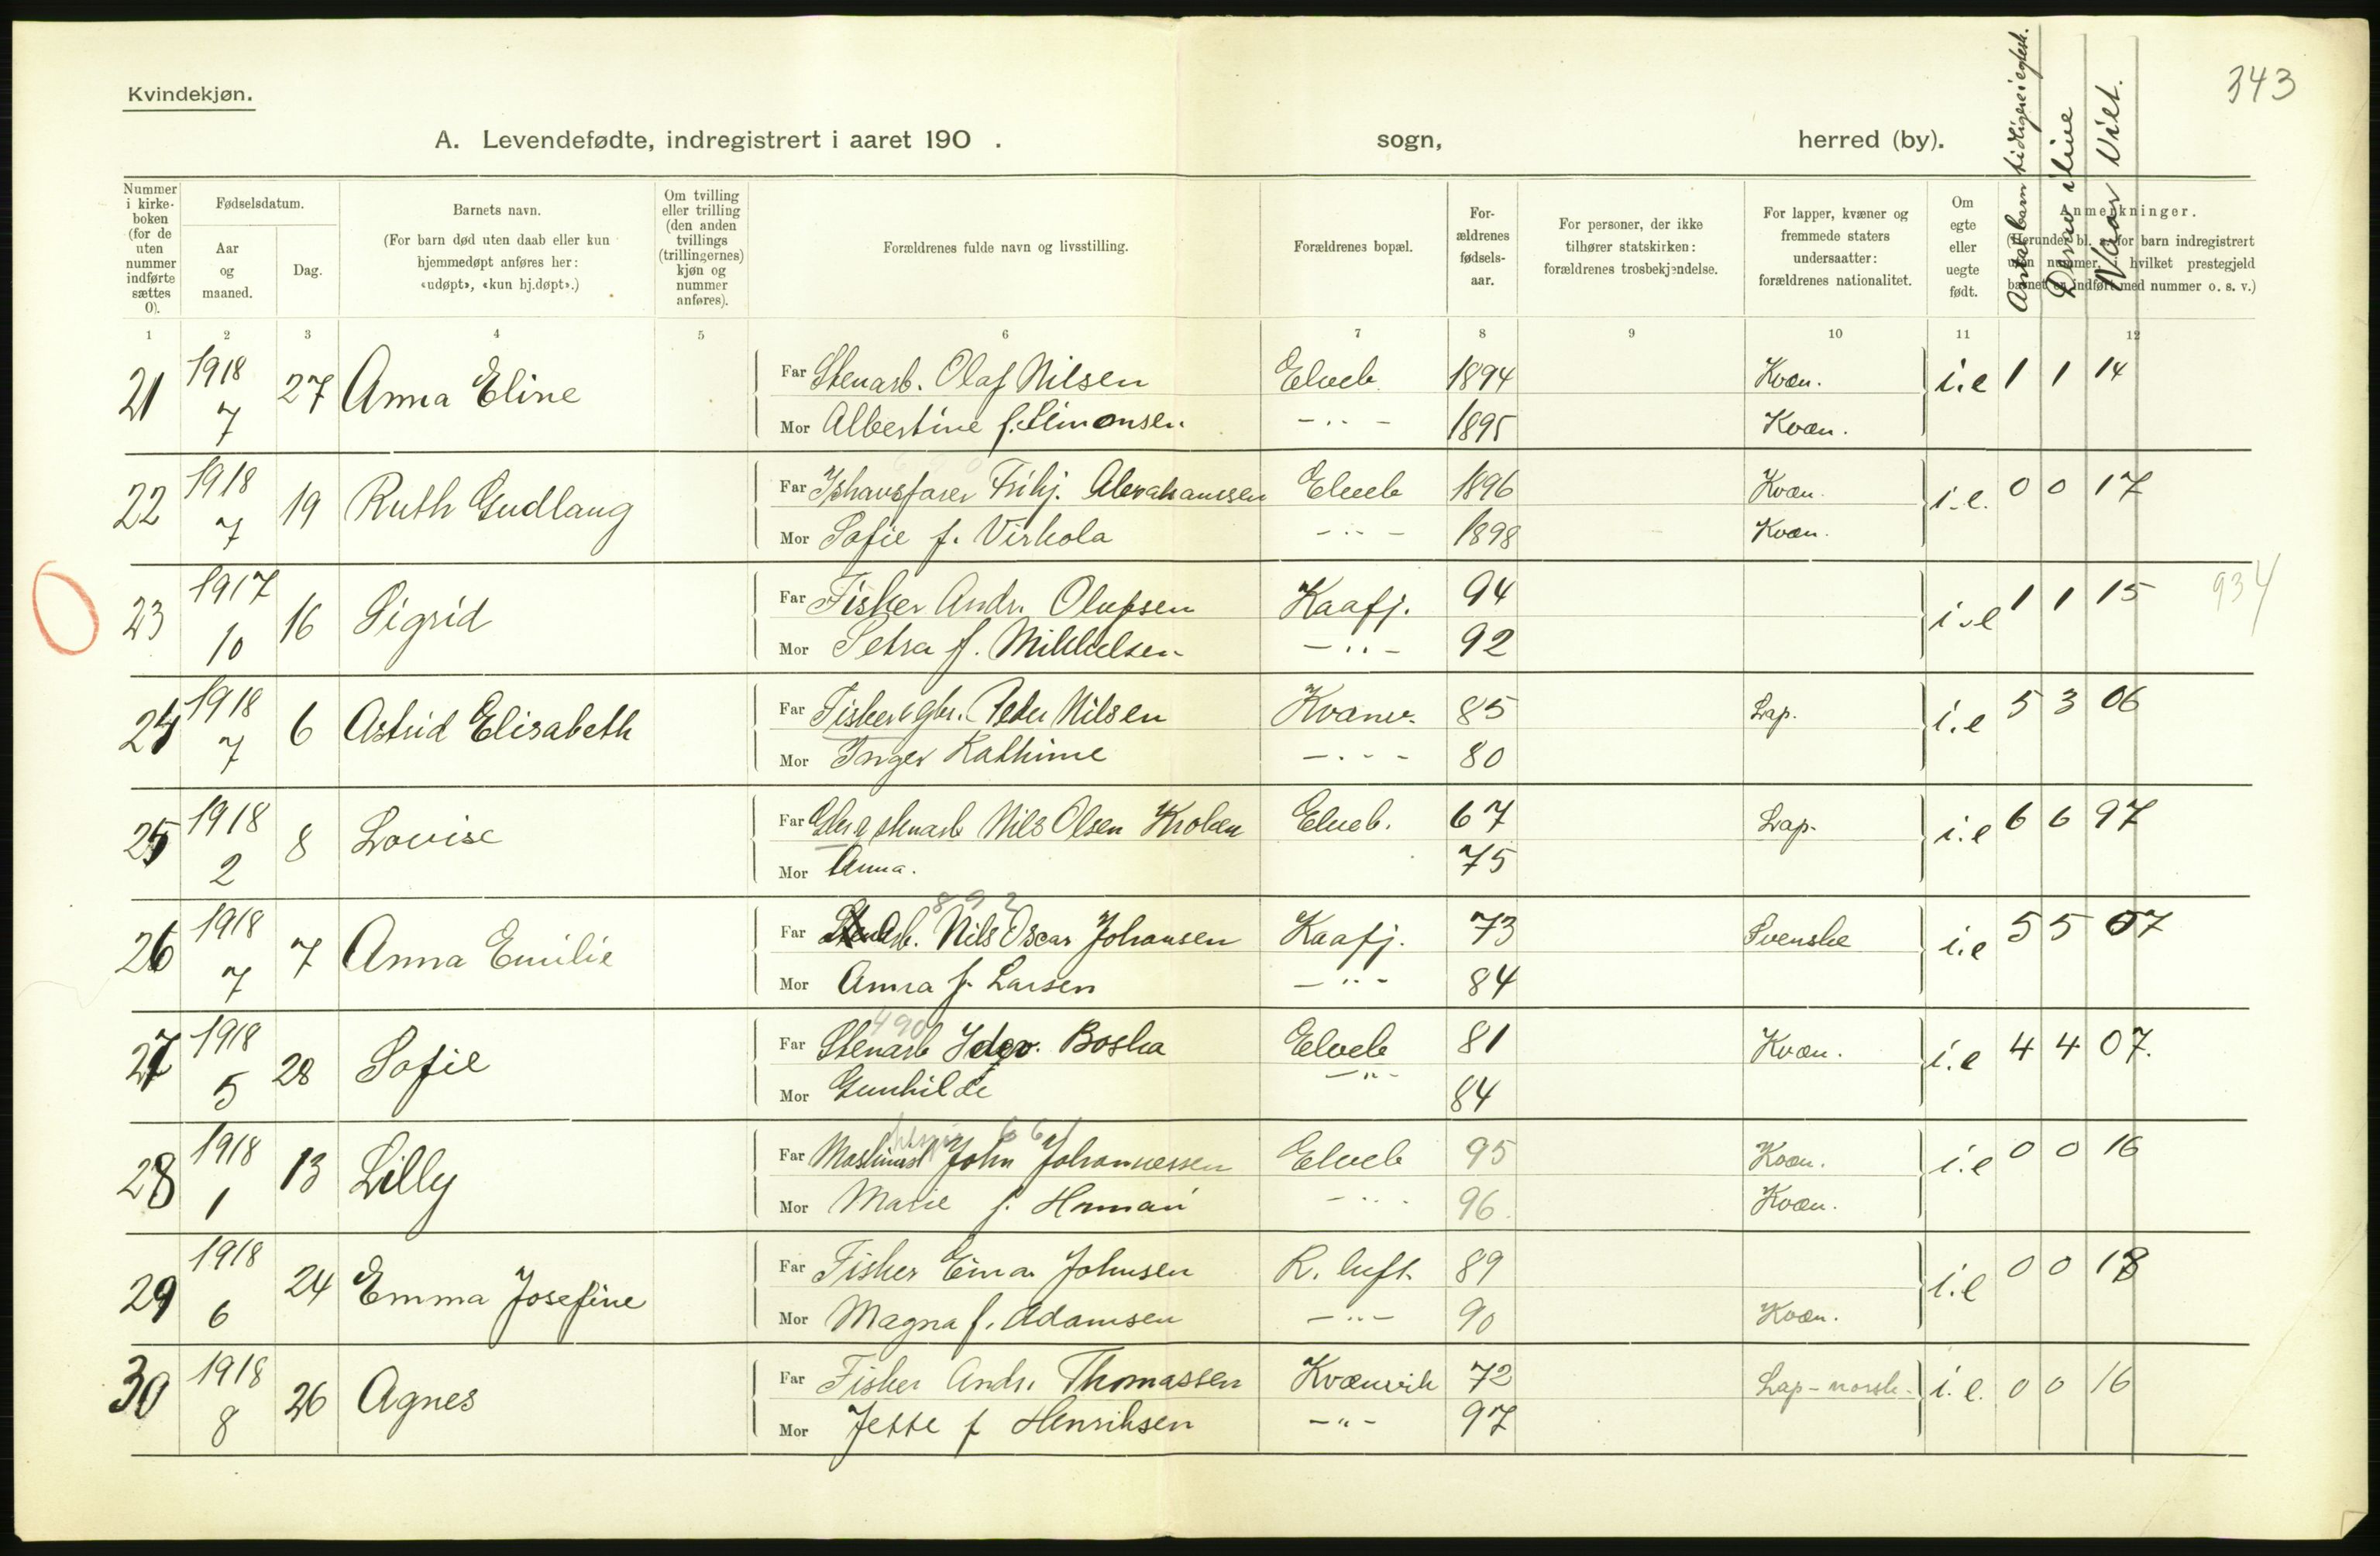 343
Kvindekjøn.
A. Levendefødte, indregistrert i aaret 190 . sogn, herred (by).
Antal barn tidligere i egtesk.
Derav ilive
Naar viet.
Nummer i kirke-boken (for de uten nummer indførte sættes 0).
Fødselsdatum.
Aar og maaned.
Dag.
Barnets navn.
(For barn død uten daab eller kun hjemmedøpt anføres her: «udøpt», «kun hj.døpt».)
Om tvilling eller trilling (den anden tvillings (trillingernes) kjøn og nummer anføres).
Forældrenes fulde navn og livsstilling.
Forældrenes bopæl.
For-ældrenes fødsels-aar.
For personer, der ikke tilhører statskirken: forældrenes trosbekjendelse.
For lapper, kvæner og fremmede staters undersaatter: forældrenes nationalitet.
Om egte eller uegte født.
Anmerkninger.
(Herunder bl. a. for barn indregistrert uten nummer, i hvilket prestegjeld barnet er indført med nummer o. s. v.)
1 2 3 4 5 6 7 8 9 10 11 12
21 1918 7 27 Anna Eline Far Stenarb. Olaf Nilsen Elveb. 1894 Kvæn. i.e 1 1 14
Mor Albertine f. Simonsen. -"- 1895 Kvæn.
22 1918 7 19 Ruth Gudlaug Far Ishavsfarer Frihj. Abrahamsen Elveb 1896 Kvæn. i.e. 0 0 17
Mor Sofie f. Virkola -"- 1898 Kvæn.
23 1917 10 16 Sigrid Far Fisker Andr. Olufsen Kaafj. 94 i.e 1 1 15 934
Mor Petra f. Mikkelsen -"- 92
24 1918 7 6 Astrid Elisabeth Far Fisker & gbr. Peder Nilsen Kvænv. 85 Lap. i.e 5 3 06
Mor Inger Kathrine -"- 80
25 1918 2 8 Lovise Far Nils Olsen Elveb. 67 Lap. i.e 6 6 97
Mor Anna. 75
892
26 1918 7 7 Anna Emilie Far Nils Oscar Johansen Kaafj. 73 Svenske i.e 5 5 07
Mor Anna f. Larsen -"- 84
490
27 1918 5 28 Sofie Far Stenarb Boska Elveb 81 Kvæn. i.e 4 4 07.
Mor Gunhilde -"- 84
661
28 1918 1 13 Lilly Far Maskinist John Johannessen Elveb 95 Kvæn. i.e 0 0 16
Mor Marie f. -"- 96 Kvæn.
29 1918 6 24 Emma Josefine Far Fisker Einar Johnsen R. luft. 89 i.e 0 0 18
Mor Magna f. Adamsen -"- 90 Kvæn.
30 1918 8 26 Agnes Far Fisker Andr. Thomassen Kvænvik 72 Lap-norsk. i.e. 0 0 16
Mor Jette f Henriksen -"- 97